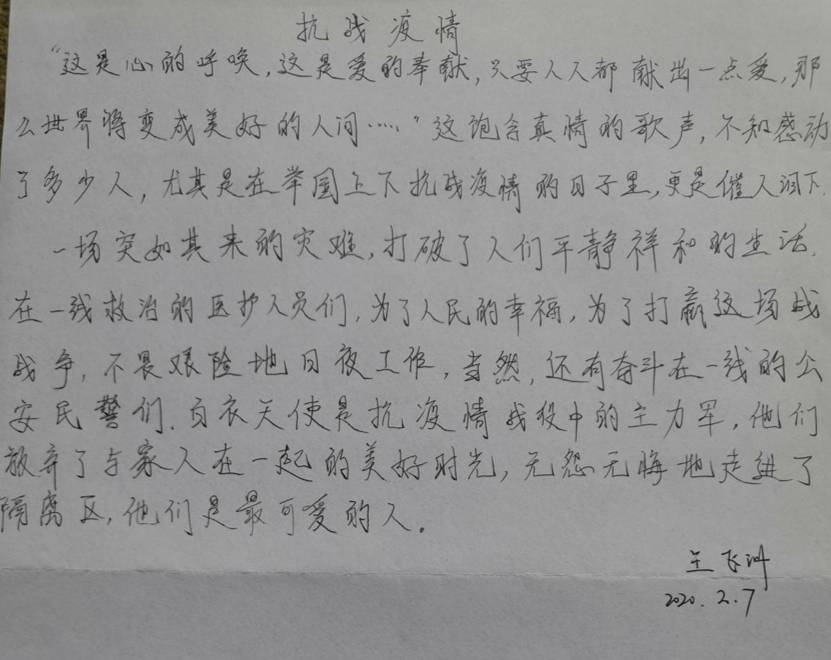 抗战疫情
“这是心的呼唤,这是爱的奉献,只要人人都献出一点爱,那
么世界将变成美好的人间……”这饱含真情的歌声,不知感动
了多少人,尤其是在举国上下抗战疫情的日子里,更是催人泪下.
一场突如其来的灾难,打破了人们平静祥和的生活.
在一线救治的医护人员们,为了人民的幸福,为了打赢这场战
战争,不畏艰险地日夜工作,当然,还有奋斗在一线的公
安民警们.白衣天使是抗疫情战役中的主力军,他们
放弃了与家人在一起的美好时光,无怨无悔地走进了
隔离区,他们是最可爱的人。
王飞
2020.2.7